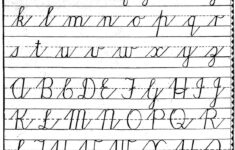 k l m n o p q r
s t u v w x y z
A B C D E F G H I J
K L M N O P Q R